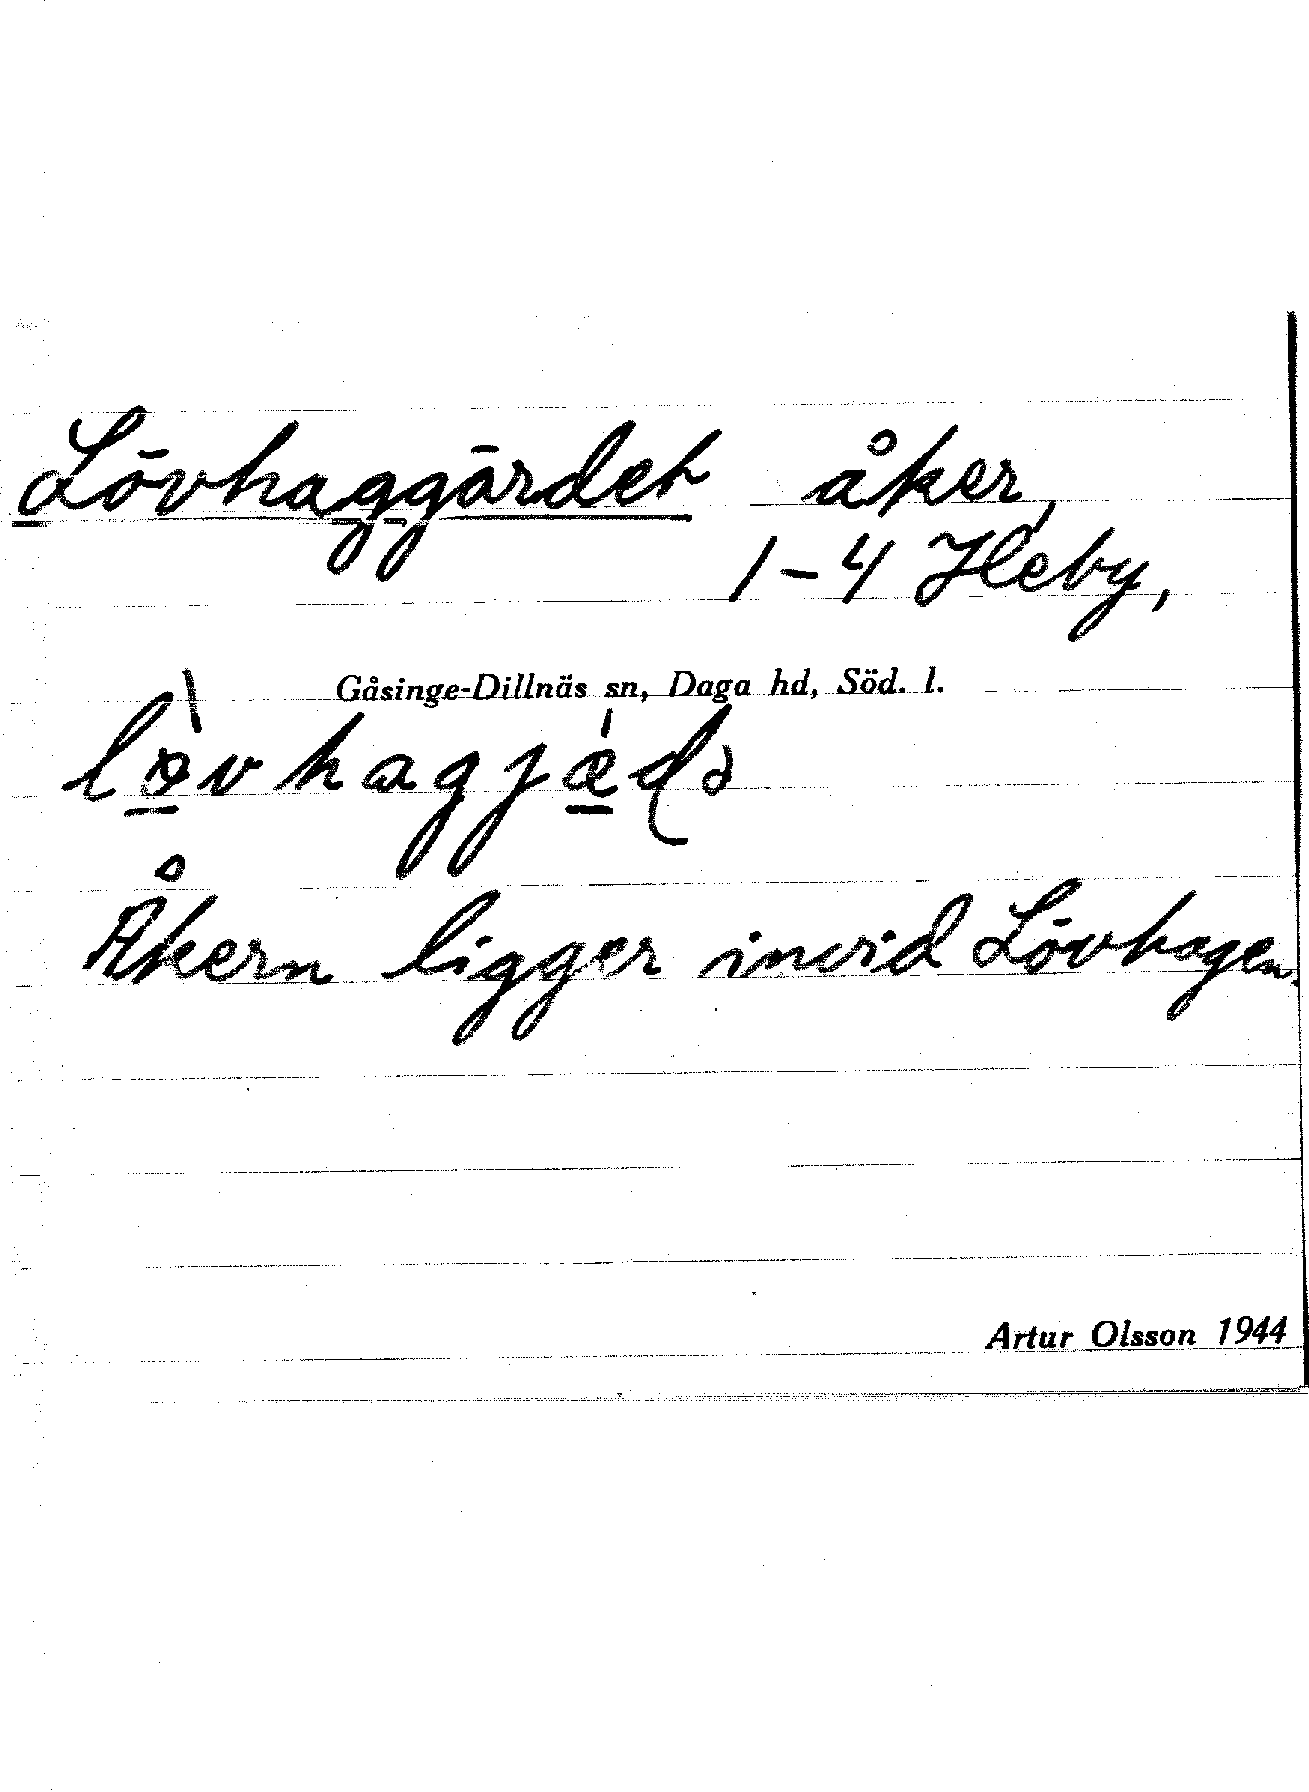 Lövhaggärdet åker,
1-4 Heby,
Gåsinge-Dillnäs sn, Daga hd, Söd. l.
lø̀vhagjæ̀ɖə
Åkern ligger invid Lövhagen.
Artur Olsson 1944